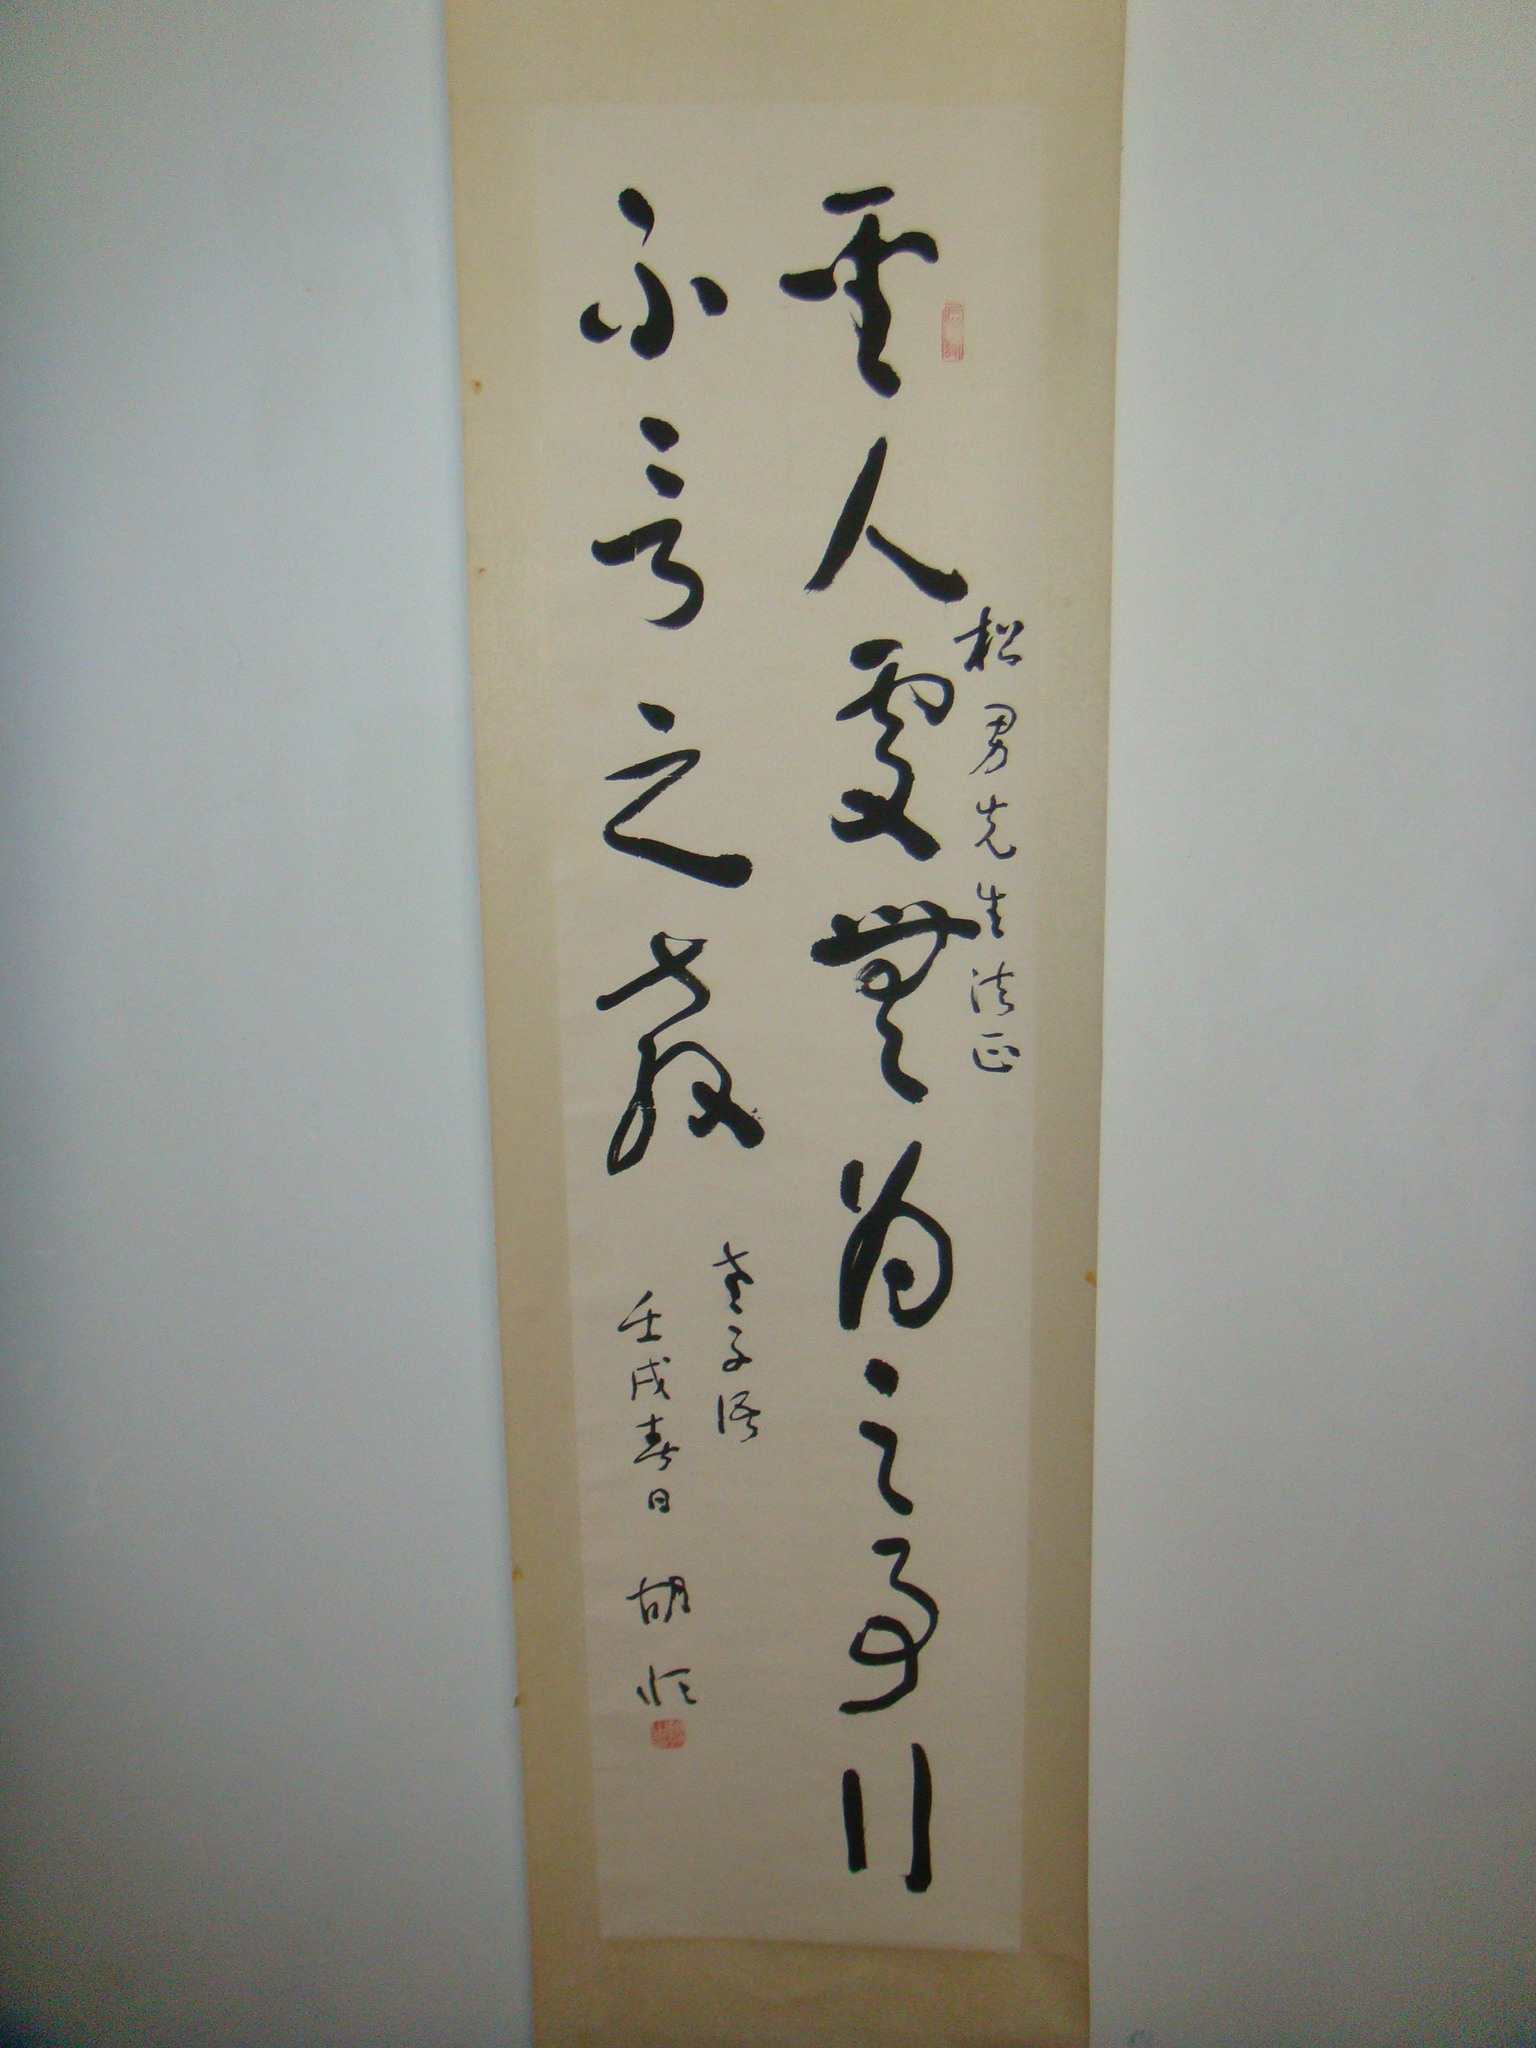 聖人處無為之事行
不言之教
松男先生法正
老子語
壬戌春日 胡恒